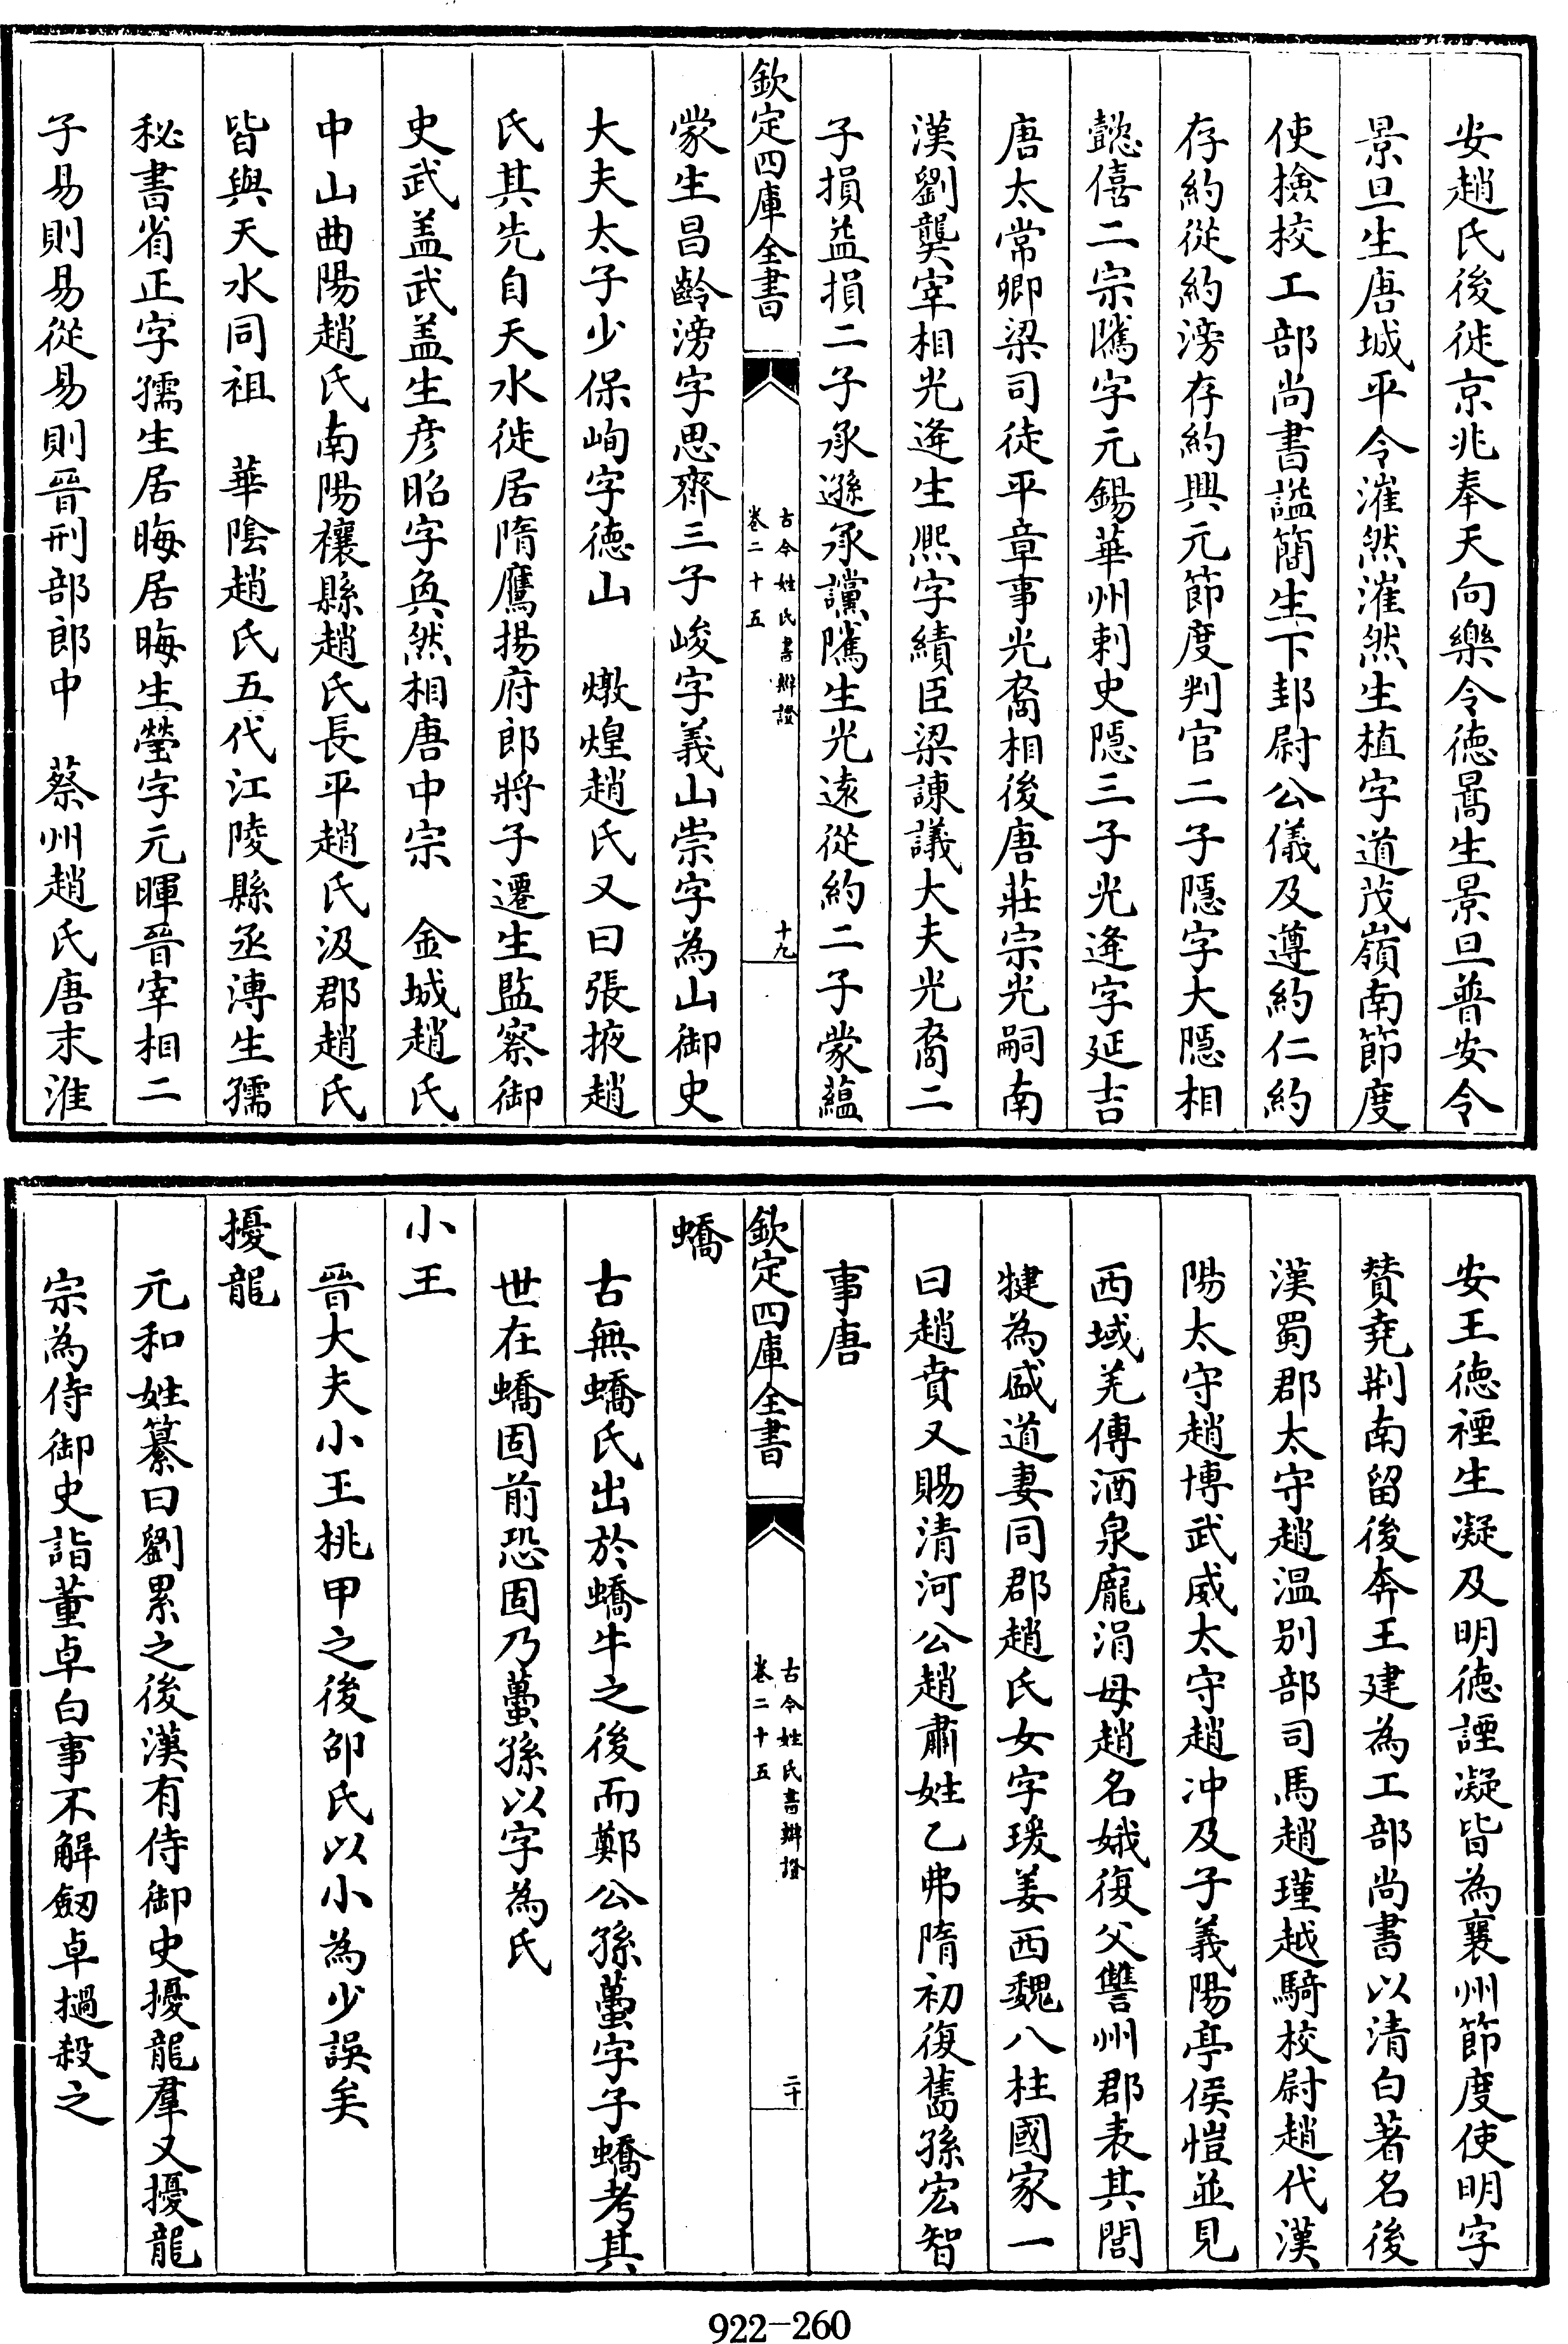 安趙氏後徙京兆奉天向樂令徳暠生景旦普安令
景旦生唐城平令漼然漼然生植字道茂嶺南節度
使檢校工部尚書諡簡生下邽尉公儀及遵約仁約
存約從約滂存約興元節度判官二子隱字大隱相
懿僖二宗騭字元錫華州刺史隱三子光逢字延吉
唐太常卿梁司徒平章事光裔相後唐莊宗光嗣南
漢劉龑宰相光逢生熙字績臣梁諌議大夫光裔二
子損益損二子承遜承讜騭生光逺從約二子蒙藴
欽定四庫全書
古今姓氏書辯證
卷二十五
十九
蒙生昌齡滂字思齊三子峻字義山崇字為山御史
大夫太子少保峋字徳山　燉煌趙氏又曰張掖趙
氏其先自天水徙居隋鷹揚府郎將子遷生監察御
史武蓋武蓋生彦昭字奐然相唐中宗　金城趙氏
中山曲陽趙氏南陽穰縣趙氏長平趙氏汲郡趙氏
皆與天水同祖　華陰趙氏五代江陵縣丞溥生孺
秘書省正字孺生居晦居晦生瑩字元暉晉宰相二
子易則易從易則晉刑部郎中　蔡州趙氏唐末淮
安王徳禋生凝及明徳諲凝皆為襄州節度使明字
賛堯荆南留後奔王建為工部尚書以清白著名後
漢蜀郡太守趙温别部司馬趙瑾越騎校尉趙代漢
陽太守趙博武威太守趙冲及子義陽亭侯愷並見
西域羌傳酒泉龎涓母趙名娥復父讐州郡表其閭
犍為盛道妻同郡趙氏女字瑗姜西魏八柱國家一
曰趙賁又賜清河公趙肅姓乙弗隋初復舊孫宏智
事唐
欽定四庫全書
古今姓氏書辯證
卷二十五
二十
蟜
古無蟜氏出於蟜牛之後而鄭公孫蠆字子蟜考其
世在蟜固前恐固乃蠆孫以字為氏
小王
晉大夫小王桃甲之後邵氏以小為少誤矣
擾龍
元和姓纂曰劉累之後漢有侍御史擾龍羣又擾龍
宗為侍御史詣董卓白事不解劒卓撾殺之
922-260